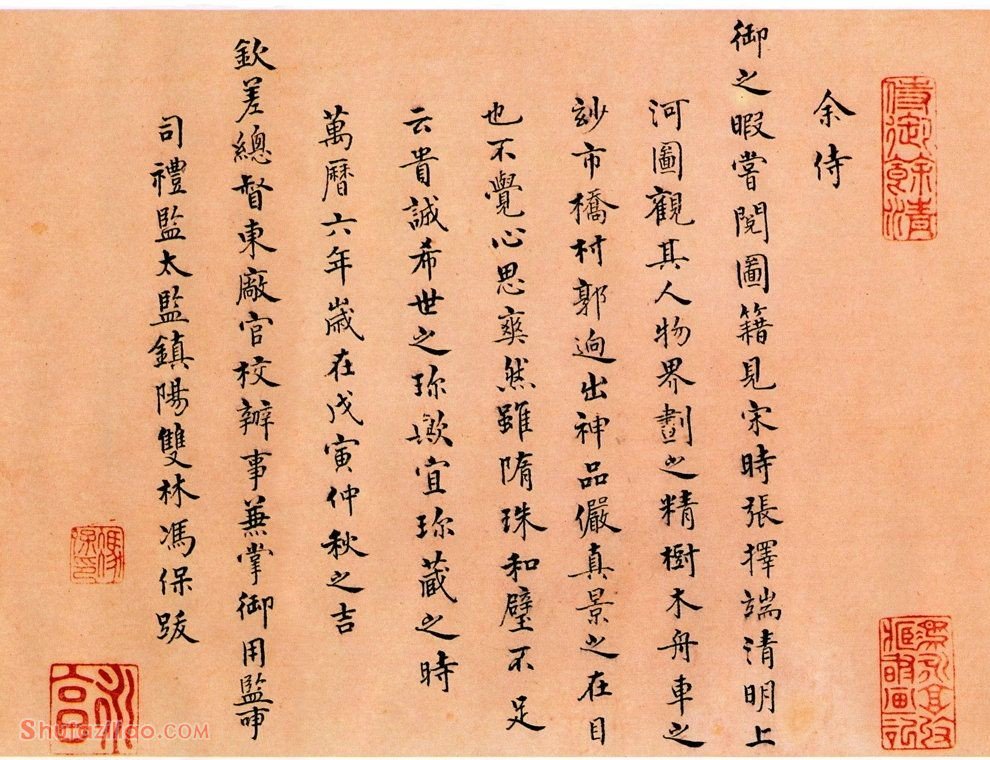 侍御餘清
余侍
御之暇嘗閱圖籍見宋時張擇端清明上
河圖觀其人物界劃之精樹木舟車之
玅市橋村郭逈出神品儼真景之在目
也不覺心思爽然雖隋珠和璧不足
云貴誠希世之珍歟宜珍藏之時
萬曆六年歲在戊寅仲秋之吉
欽差總督東廠官校辦事兼掌御用監事
司禮監太監鎮陽雙林馮保跋
馮保印
Shufaziliao.com